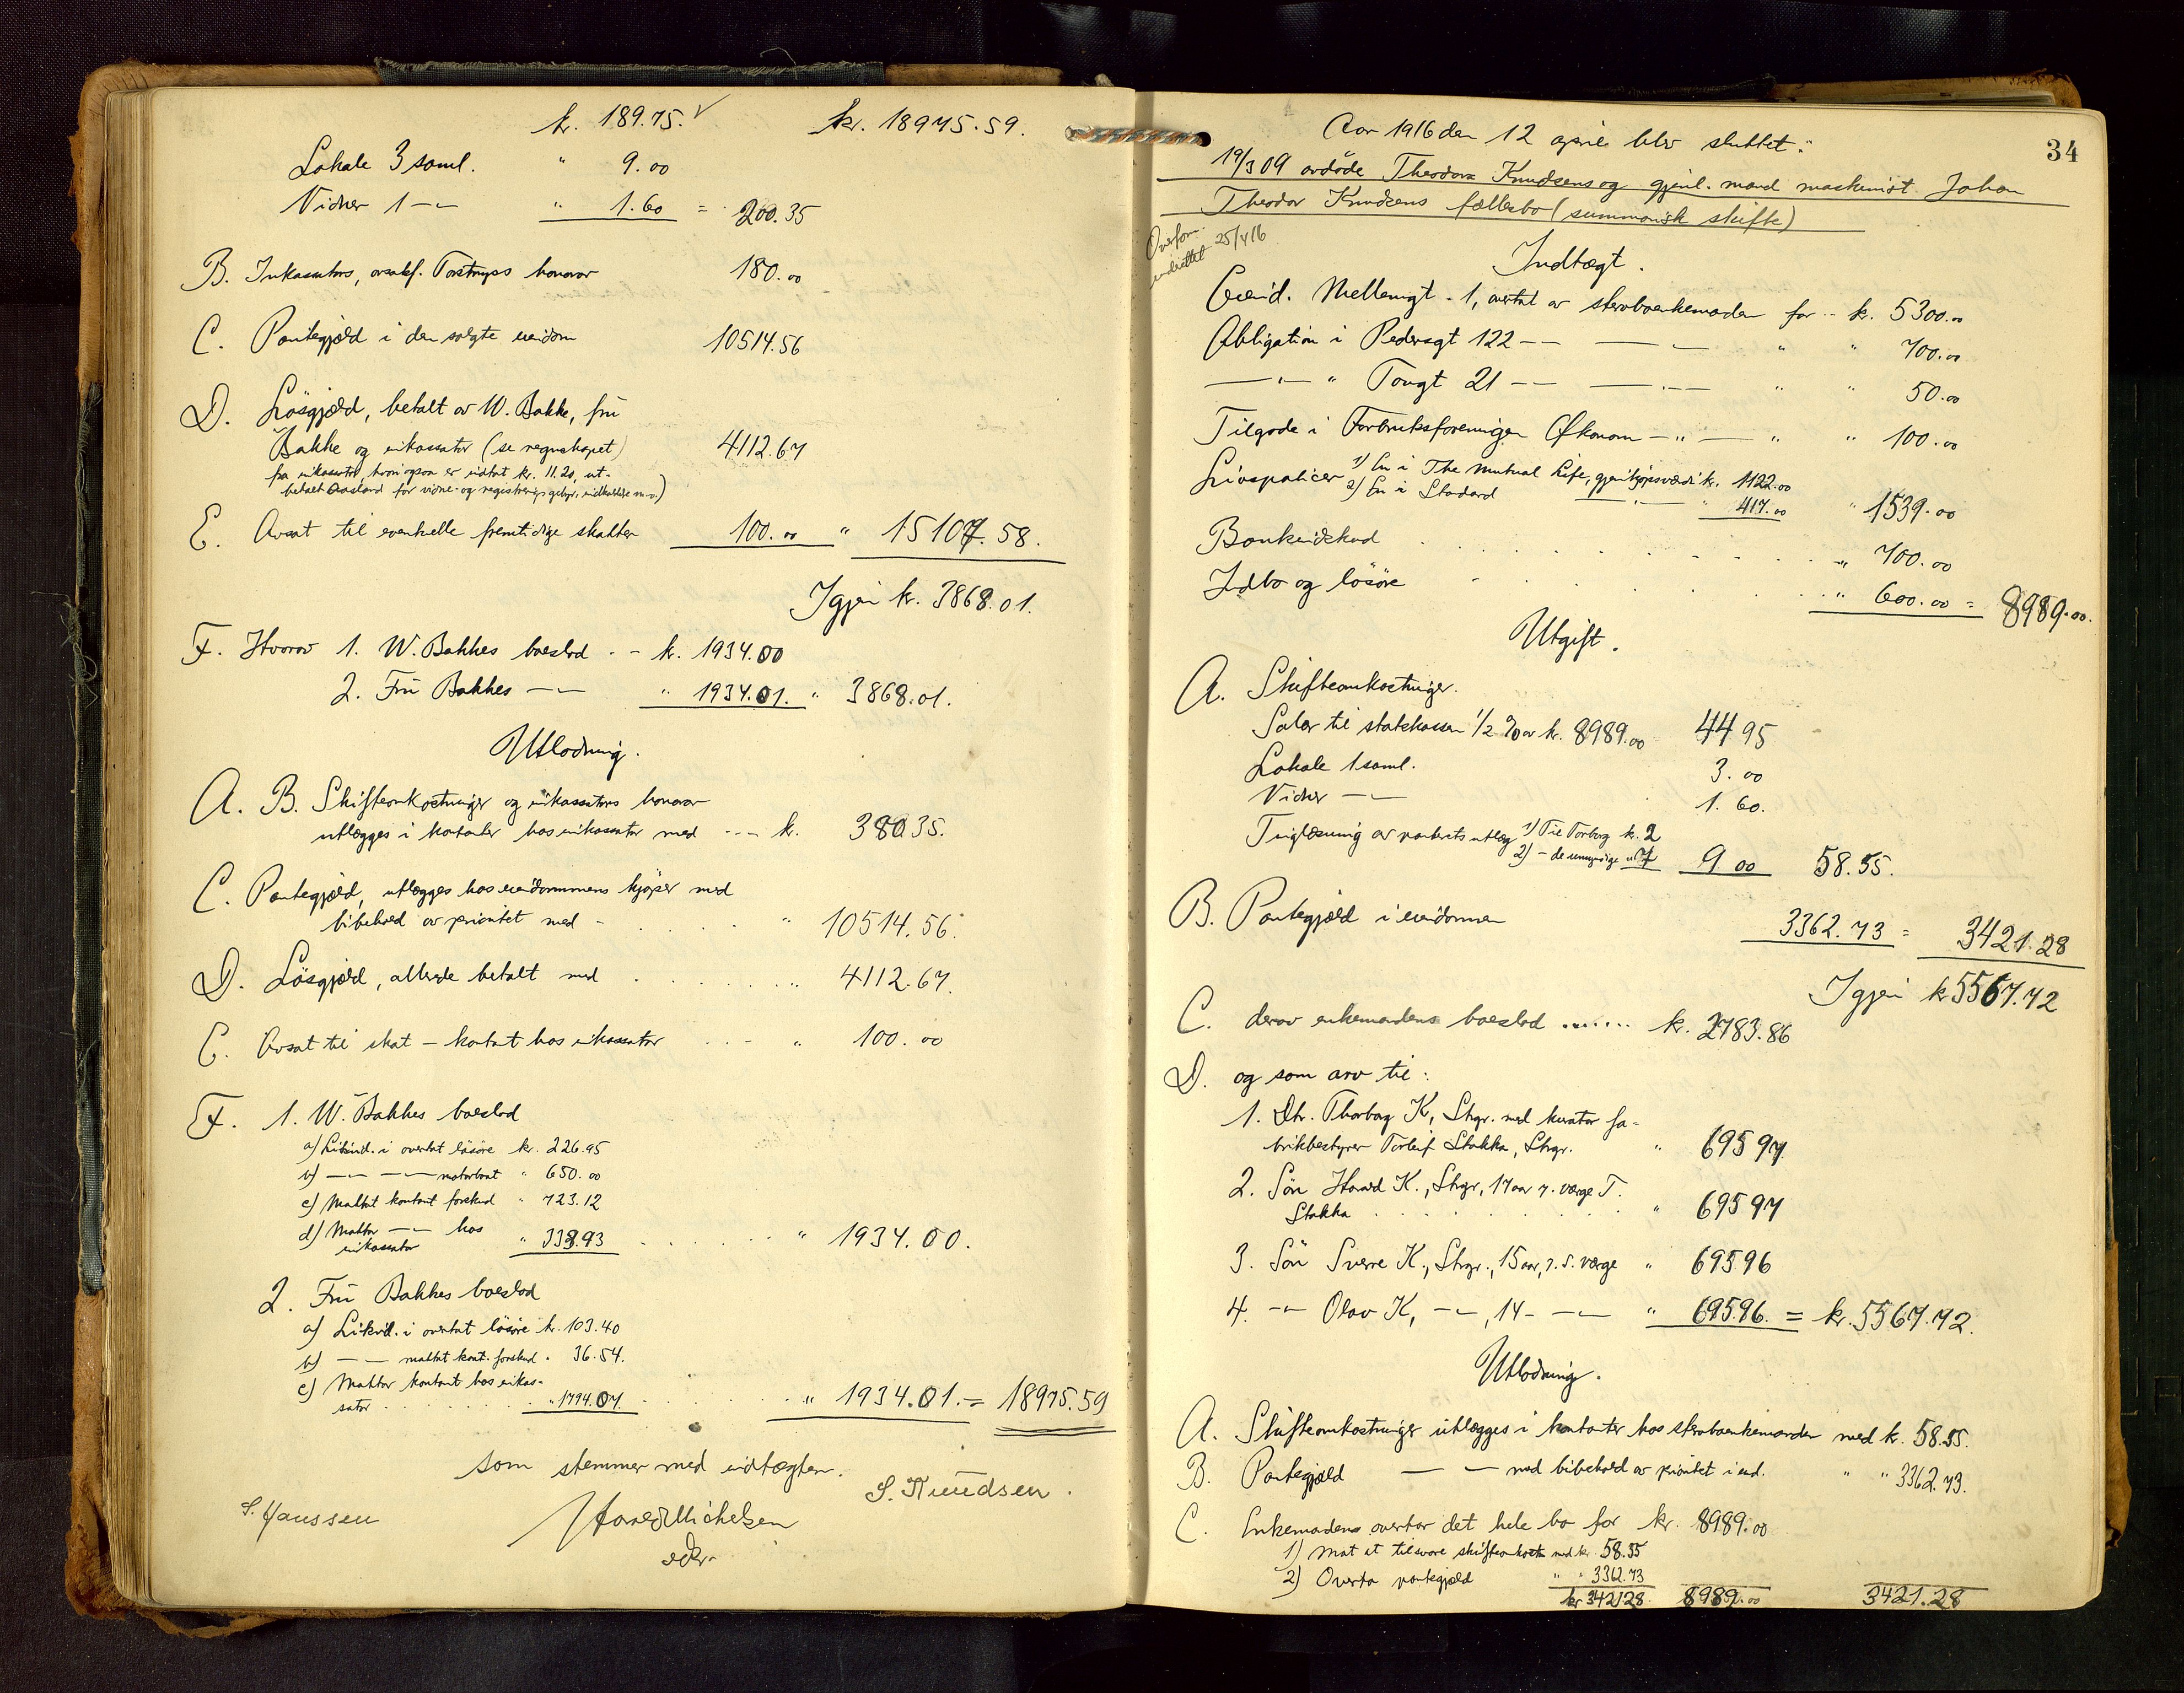 kr. 189.75. √ kr. 18975.59.
Lokale 3 saml. " 9.00
Vidner 1 — " — " 1.60 = 200.35
B. Inkassators, honorar 180.00
C. Pantegjæld i den solgte eiendom 10514.56
D. Løsgjæld, betalt av W. Bakke, frü
Bakke og inkassator (se regnskapet) 4112.67
fra inkassator, hvori ogsaa er indtat kr. 11.20, ut-
betalt for vidne- og registreringsgebyr, indkaldelse m.v.)
E. Avsat til eventuelle fremtidige skatter 100.00 " 15107.58.
Igjen kr. 3868.01.
F. Hvorav 1. W. Bakkes boeslod - - kr. 1934.00
2. Frü Bakkes — " — " 1934.01. " 3868.01.
Utlodning.
A. B. Skifteomkostninger og inkassators honorar
utlægges i kontanter hos inkassator med --- kr. 380.35.
C. Pantegjæld, utlægges hos eiendommens kjøper med
bibehold av prioritet med - " 10514.56.
D. Løsgjæld, allerede betalt med " 4112.67.
E. Avsat til skat — kontant hos inkassator " 100.00
F. 1. W. Bakkes boeslod
a) Likvid. i overtat løsøre kr. 226.95
b) — " — — " — motorbaat " 650.00
c) Mottat kontant forskud " 723.12
d) Mottar — " — hos
inkassator " 333.93 " 1934.00.
2. Frü Bakkes boeslod
a) Likvid. i overtat løsøre kr. 103.40
b) — " — mottat kont. forskud " 36.54.
c) Mottar kontant hos inkas-
sator " 1794.07. " 1934.01. = 18975.59
som stemmer med indtægten.
S. Hanssen Michelsen S. Knudsen.
34
Aar 1916 den 12 april blev sluttet:
19/3 09 avdøde Theodora Knudsens og gjenl. mand maskinist Johan
Theodor Knudsens fællesbo (summarisk skifte)
25/4 16
Indtægt.
Eiend. Mellemgt. 1, overtat av sterboenkemanden for -- kr. 5300.00
Obligation i Pedersgt 122 — " — — " — " " 700.00
— " — " Tougt 21 — " — — " — " " 50.00
Tilgode i Forbruksforeningen Økonom — " — " " 100.00
Livspolicer 1) En i The Mutual Life, gjenkjøpsværdi kr. 1122.00
2) En i Standard — " — " 417.00 " 1539.00
Bankindskud " 700.00
Indbo og løsøre " 600.00 = 8989.00.
Utgift.
A. Skifteomkostninger.
Salær til statskassen 1/2 % av kr. 8989.00 44 95
Lokale 1 saml. 3.00
Vidner — " — 1.60.
Tinglæsning av panterets utlæg 1) Til Torborg kr. 2
2) - de umyndige " 7 9 00 58.55.
B. Pantegjæld i eiendommen 3362.73 = 3421.28
Igjen kr 5567.72
C. derav enkemandens boeslod ....... kr. 2783.86
D. og som arv til:
1. Dtr. Thorborg K, Stvgr. med kurator fa-
brikbestyrer Torleif Stakka, Stvgr. " 695 97
2. Søn Harald K., Stvgr, 17 aar v. værge T.
Stakka " 695 97
3. Søn Sverre K., Stvgr., 15 aar, v. s. værge " 695 96
4. — " — Olav K, — " —, 14 - — " — " 695 96. = kr. 5567.72.
Utlodning.
A. Skifteomkostninger utlægges i kontanter hos sterboenkemanden med kr. 58.55.
B. Pantegjæld — " — med bibehold av prioritet i eiend. " " 3362.73.
C. Enkemanden overtar det hele bo for kr. 8989.00
1) Mot at tilsvare skifteomkostn med kr. 58.55
2) Overta pantegjæld " " 3362.73
kr 3421 28 8989.00 3421.28